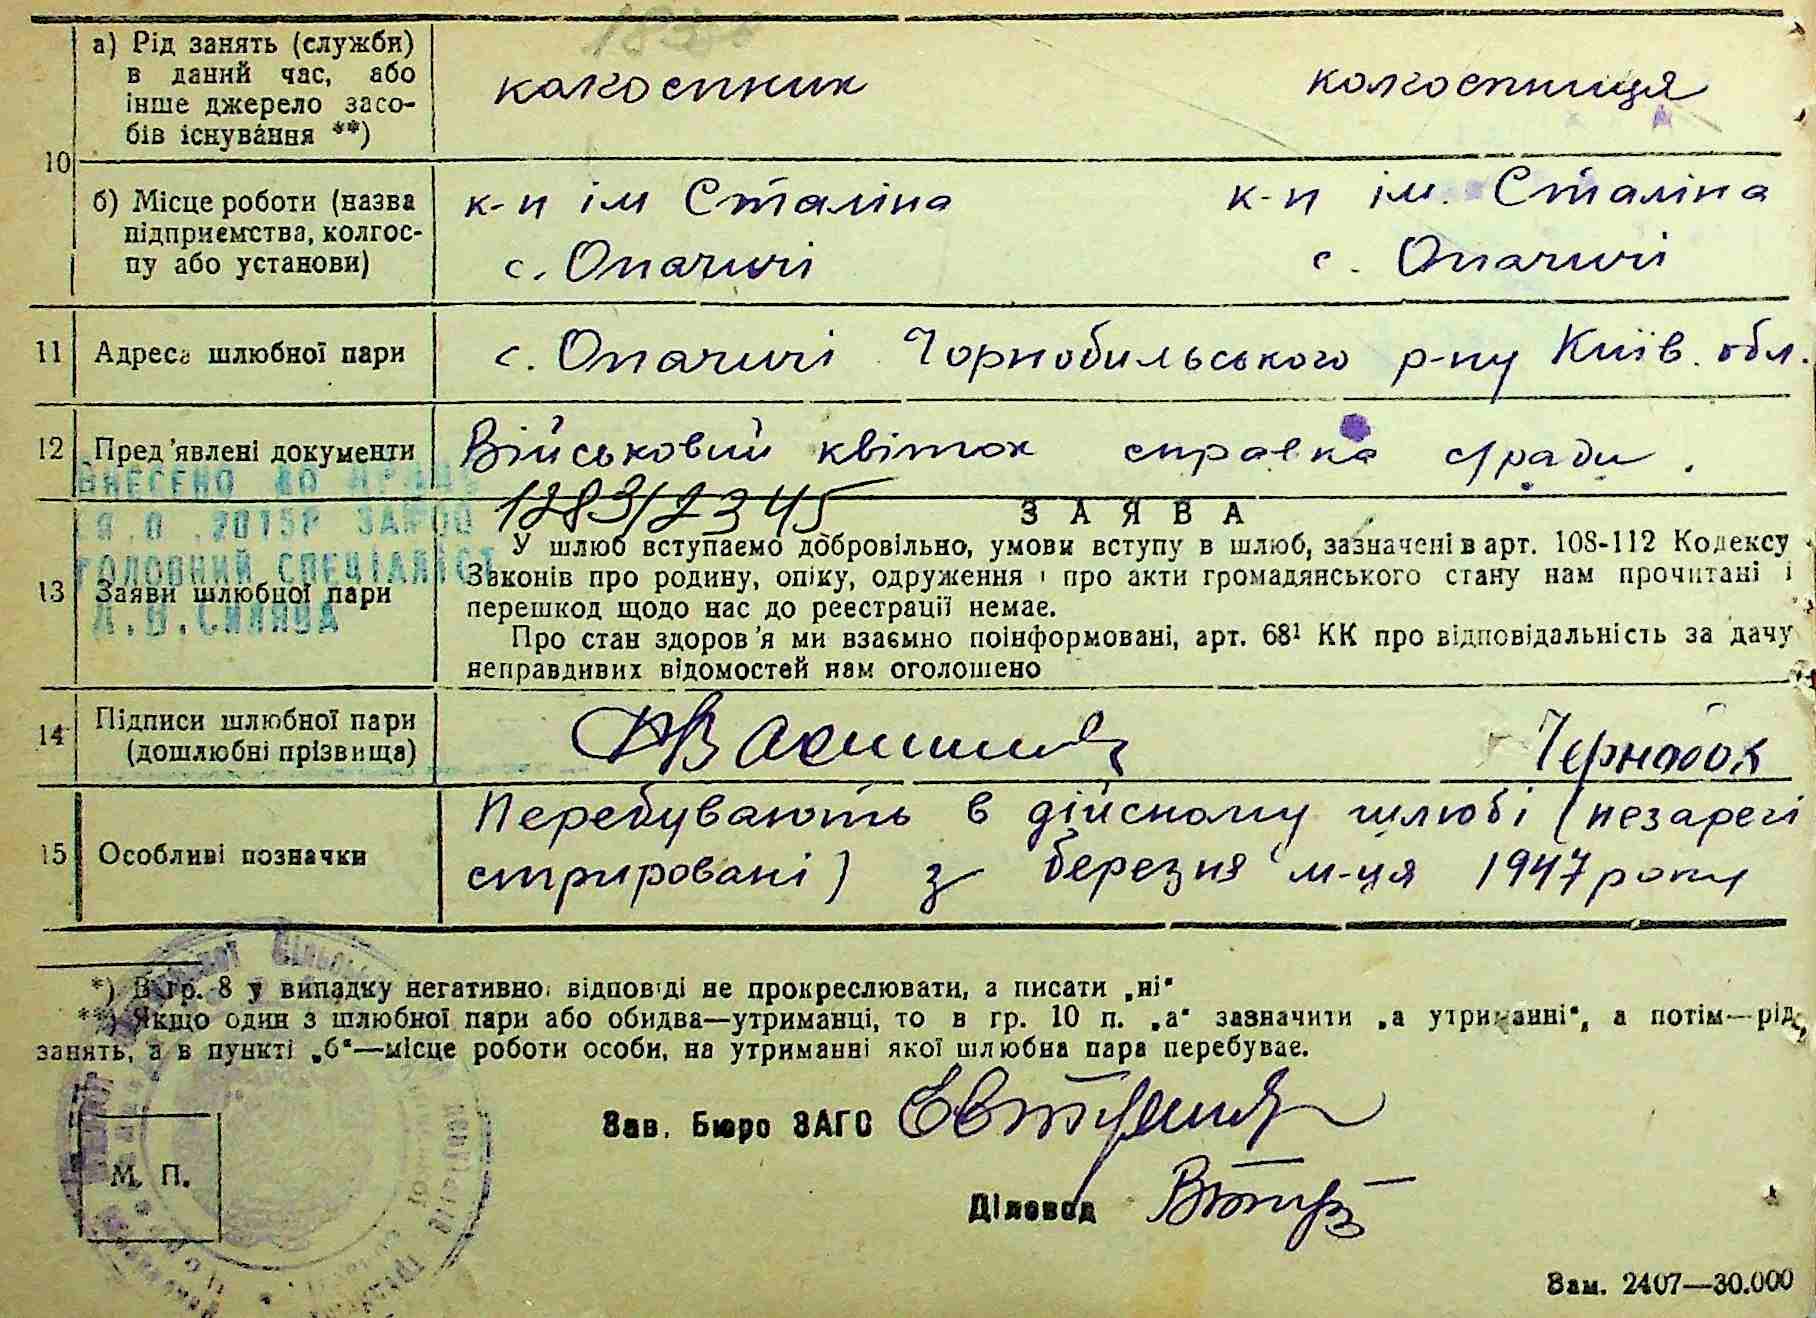 а) Рід занять (служби)
в даний час, або
інше джерело засо-
бів існування **)
колгоспник колгоспниця
10
б) Місце роботи (назва
підприємства, колгос-
пу або установи)
к-п ім Сталіна к-п ім. Сталіна
с. Опачичі с. Опачичі
11 Адреса шлюбної пари с. Опачичі Чорнобильського р-ну Київ. обл.
12 Пред'явлені документи Військовий квіток справка с/ради.
ВНЕСЕНО ДО
ГОЛОВНИЙ СПЕЦІАЛІСТ
1283/2345
ЗАЯВА
13 Заяви шлюбної пари
У шлюб вступаємо добровільно, умови вступу в шлюб, зазначені в арт. 108-112 Кодексу
Законів про родину, опіку, одруження і про акти громадянського стану нам прочитані і
перешкод щодо нас до реєстрації немає.
Про стан здоров'я ми взаємно поінформовані, арт. 68¹ КК про відповідальність за дачу
неправдивих відомостей нам оголошено
14 Підписи шлюбної пари
(дошлюбні прізвища)
15 Особливі позначки
Перебувають в дійсному шлюбі (незарегі
стрировані) з березня м-ця 1947 року
*) В гр. 8 у випадку негативної відповіді не прокреслювати, а писати „ні"
**) Якщо один з шлюбної пари або обидва—утриманці, то в гр. 10 п. „а" зазначити „а утриманні", а потім—рід
занять, а в пункті „б"—місце роботи особи, на утриманні якої шлюбна пара перебуває.
Зав. Бюро ЗАГС
М. П.
Діловод
Зам. 2407—30.000